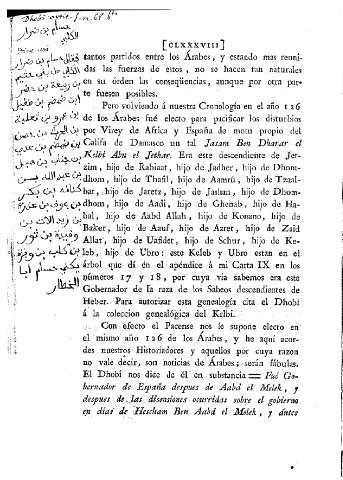 حسام بن ضرار
الكلبي
[CLXXXVIII]
tantos partidos entre los Árabes, y estando mas reuni-
das las fuerzas de estos, no se hacen tan naturales
en su órden las conseqüencias, aunque por otra par-
te fuesen posibles.
Pero volviendo á nuestra Cronología en el año 126
de los Árabes fué electo para pacificar los disturbios
por Virey de Africa y España de motu proprio del
Califa de Damasco un tal Jasam Ben Dharar el
Kelbi Abu el Jethar. Era este descendiente de Jer-
zim, hijo de Rabiaat, hijo de Jadher, hijo de Dhom-
dhom, hijo de Thafil, hijo de Aamrú, hijo de Tzaal-
bar, hijo de Jaretz, hijo de Jashan, hijo de Dhom-
dhom, hijo de Aadi, hijo de Ghenab, hijo de Ha-
bal, hijo de Aabd Allah, hijo de Konano, hijo de
Baker, hijo de Aauf, hijo de Azret, hijo de Zaid
Allat, hijo de Uafider, hijo de Schur, hijo de Ke-
leb, hijo de Ubro: este Keleb y Ubro estan en el
árbol que di en el apéndice á mi Carta IX en los
números 17 y 18, por cuya via sabemos era este
Gobernador de la raza de los Sabeos descendientes de
Heber. Para autorizar esta genealogía cita el Dhobi
á la coleccion genealógica del Kelbi.
Con efecto el Pacense nos le supone electo en
el mismo año 126 de los Árabes, y he aquí acor-
des nuestros Historiadores y aquellos por cuya razon
no vale decir, son noticias de Árabes: serán fábulas.
El Dhobi nos dice de él en substancia = Fué Go-
bernador de España despues de Aabd el Melek, y
despues de las disensiones ocurridas sobre el gobierno
en dias de Hescham Ben Aabd el Melek, y ántes
حسام بن ضرار
بن ربيعة بن حصن
ابن ضمضم بن طفيل
بن عمرو بن ثعلبة
بن ضمضم بن عدي
بن جناب بن هبل
بن عبد الله بن
كنانة بن بكر
بن عوف بن عذرة
بن زيد اللات بن
بن ثور
بن كلب بن وبرة
يكنى حسام ابا
الخطار